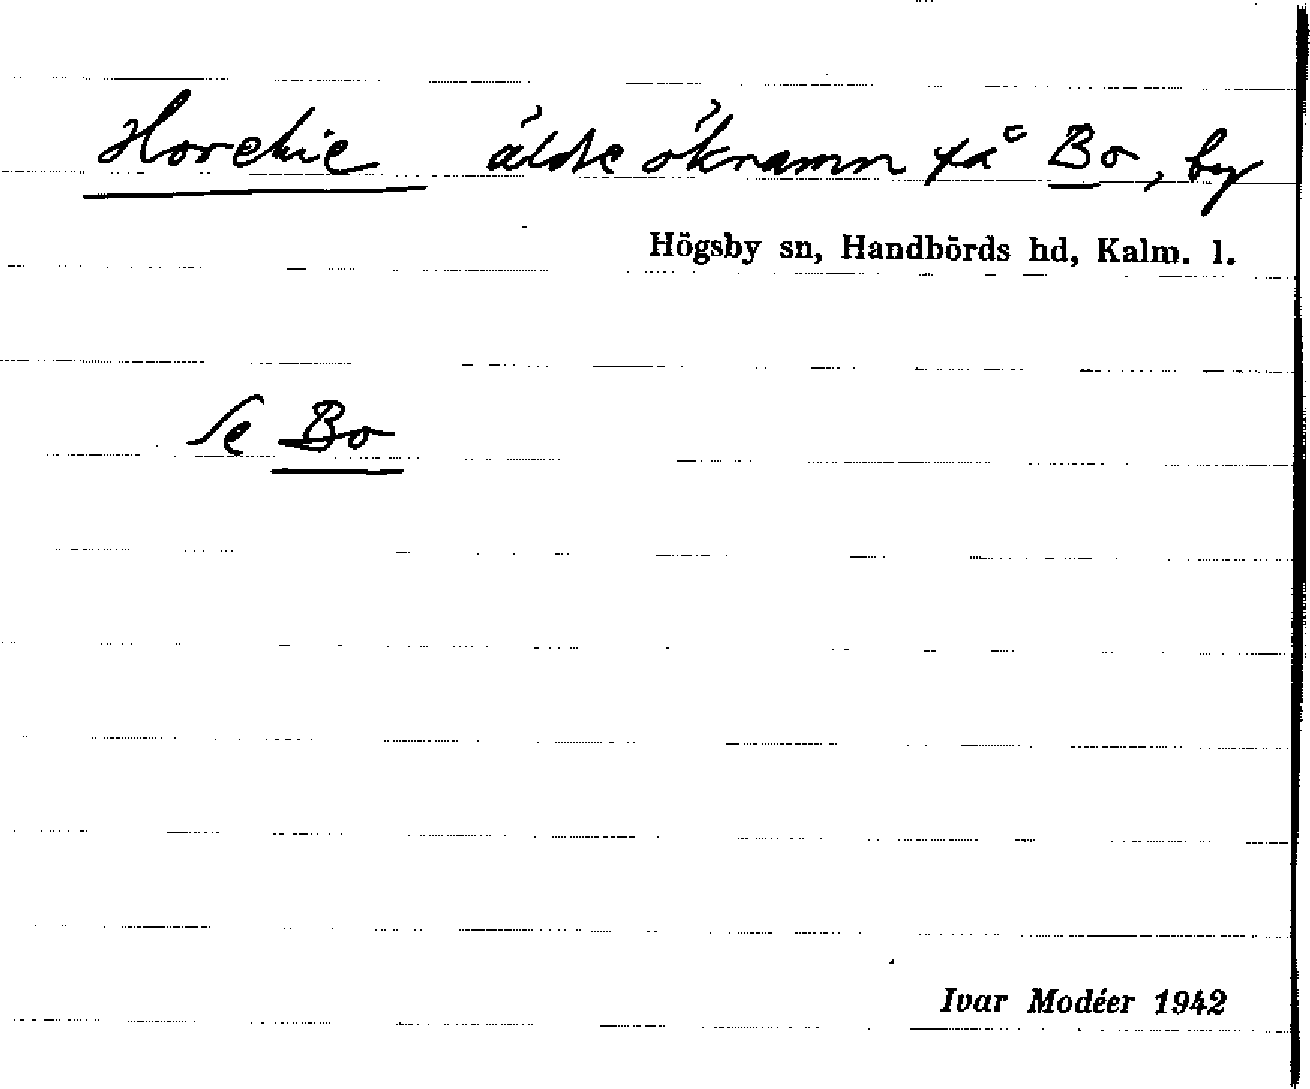 Horehie äldre öknamn på Bo, by
Högsby sn, Handbörds hd, Kalm. l.
Se Bo
Ivar Modéer 1942